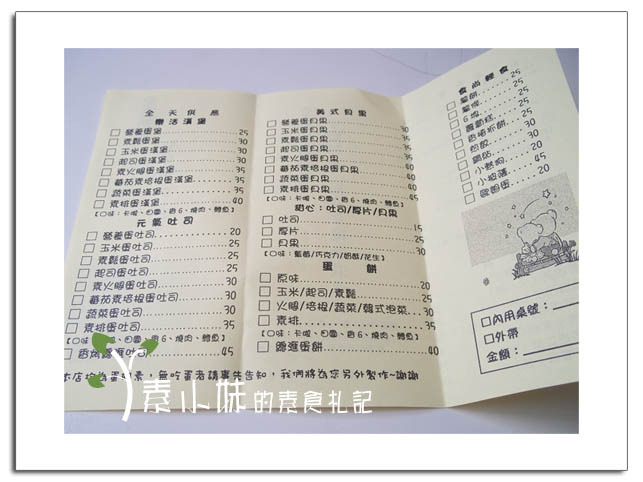 全天供應
樂活漢堡
營養蛋堡 25
素鬆蛋堡 30
玉米蛋漢堡 30
起司蛋漢堡 30
素火腿蛋漢堡 35
蕃茄素培根蛋漢堡 35
蔬菜蛋漢堡 35
素排蛋漢堡 40
元氣吐司
營養蛋吐司 20
玉米蛋吐司 25
素鬆蛋吐司 25
起司蛋吐司 25
素火腿蛋吐司 30
蕃茄素培根蛋吐司 30
蔬菜蛋吐司 30
素排蛋吐司 35
45
美式貝果
營養蛋貝果 30
玉米蛋貝果 35
素鬆蛋貝果 35
起司蛋貝果 35
素火腿蛋貝果 40
蕃茄素培根蛋貝果 40
蔬菜蛋貝果 40
素排蛋貝果 45
甜心：吐司/厚片/貝果
吐司 15
厚片 25
貝果 30
【口味：藍莓/巧克力/奶酥/花生】
蛋餅
原味 20
玉米/起司/素鬆 25
火腿/培根/蔬菜/韓式泡菜 30
素排 35
蛋餅 40
食尚輕食
25
25
25
蘿蔔糕 25
25
20
20
小熱狗
小披薩 45
20
內用桌號：
外帶
金額：
本店均為蛋奶素，無吃蛋者請事先告知，我們將為您另外製作~謝謝
素小妹的素食札記